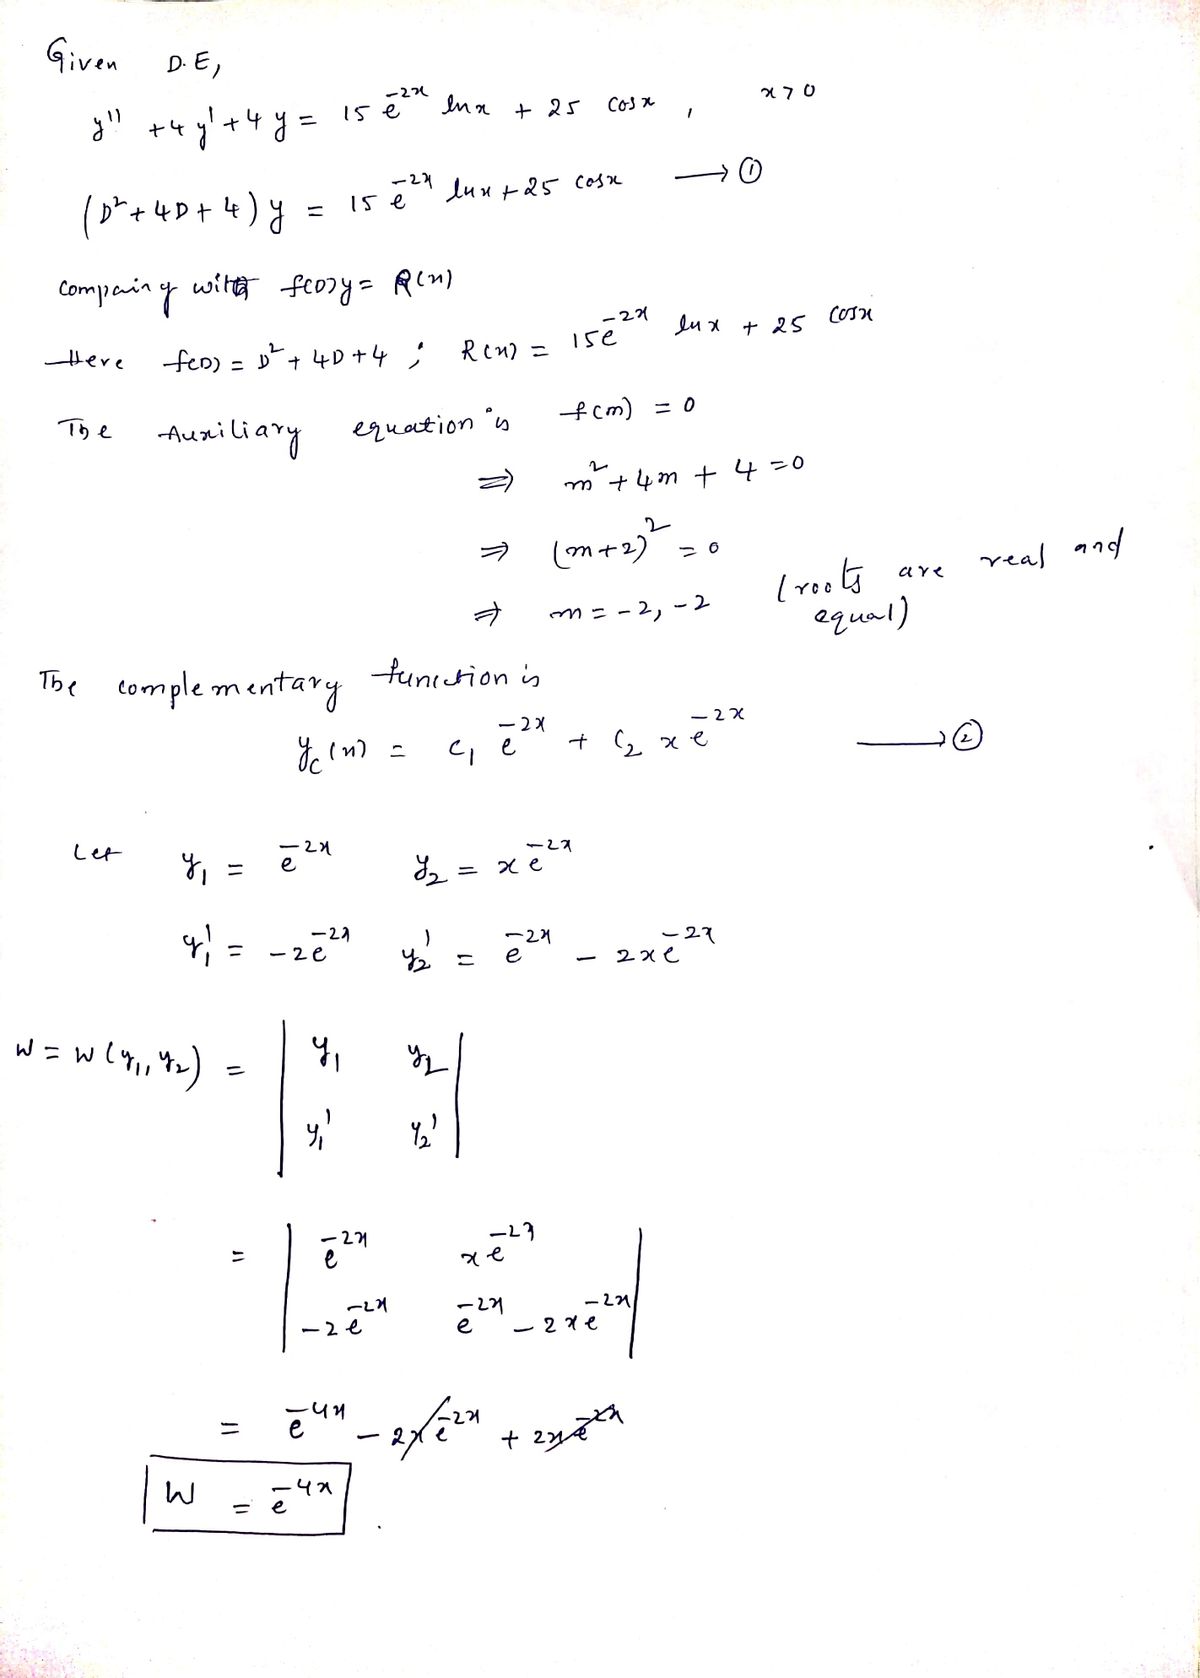 Given D.E,
y'' + 4y' + 4y = 15 e^{-2x} ln x + 25 cos x , x > 0
(D^2 + 4D + 4) y = 15 e^{-2x} ln x + 25 cos x → ①
Compairing with f(D)y = R(x)
Here f(D) = D^2 + 4D + 4 ; R(x) = 15e^{-2x} ln x + 25 cos x
The Auxiliary equation is f(m) = 0
⇒ m^2 + 4m + 4 = 0
⇒ (m+2)^2 = 0
⇒ m = -2, -2 (roots are real and
equal)
The complementary function is
y_c(x) = c_1 e^{-2x} + c_2 x e^{-2x} → ②
Let y_1 = e^{-2x} y_2 = x e^{-2x}
y_1' = -2e^{-2x} y_2' = e^{-2x} - 2xe^{-2x}
W = W(y_1, y_2) = | y_1 y_2 |
| y_1' y_2' |
= | e^{-2x} x e^{-2x} |
| -2e^{-2x} e^{-2x} - 2xe^{-2x} |
= e^{-4x} - 2xe^{-2x} + 2xe^{-2x}
W = e^{-4x} .